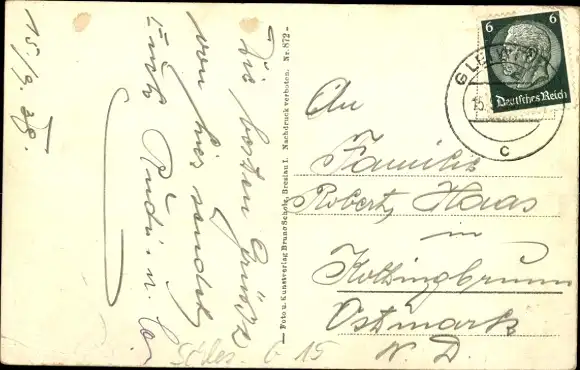 15./9. 38.
Die besten Grüsse
von hier sendet
Euch Rudi u.
Foto u. Kunstverlag Bruno Scholz, Breslau I. Nachdruck verboten. Nr. 872
6 6
Deutsches Reich
GLEIWITZ
15
c
An
Familie
Robert Haas
in
Kottingbrunn
Ostmark
N. D.
Schles. G 15